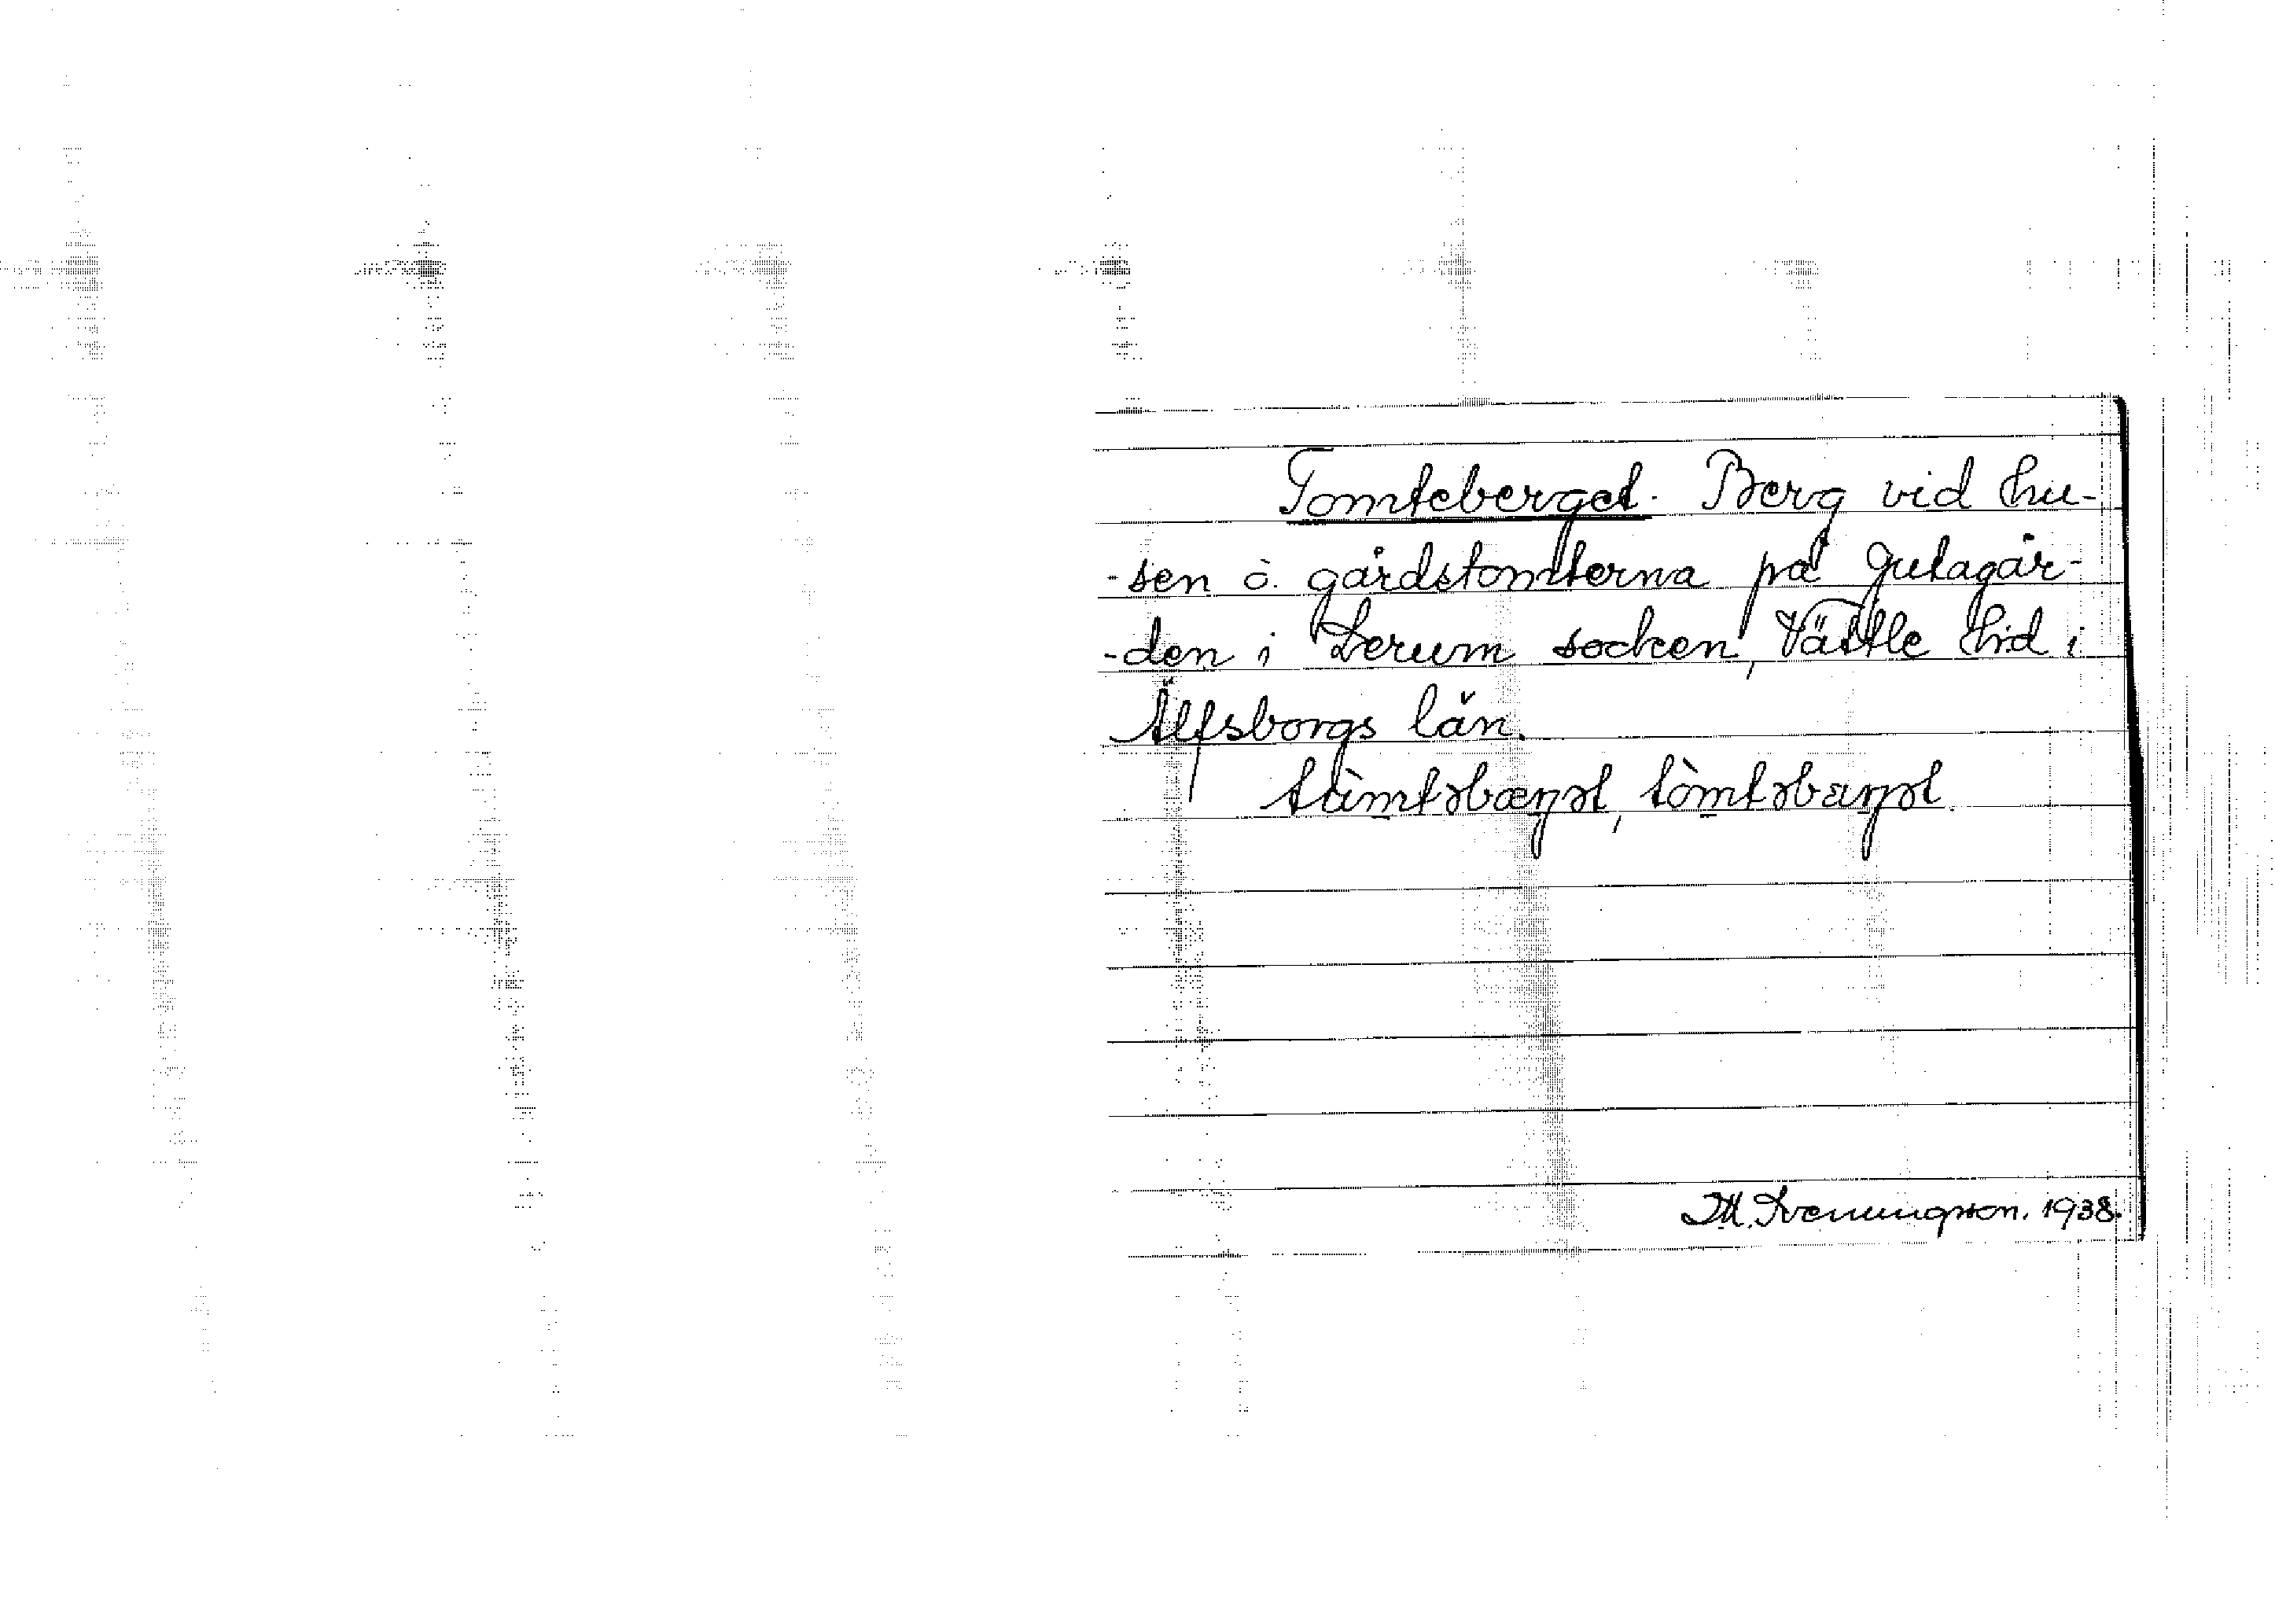 Tomteberget. Berg vid hu-
-sen o. gårdstomterna på Jutagår-
-den i Lerum socken, Vättle hd i
Älfsborgs län.
tùmtəbæŋət, tòmtəbæŋət.
Th. Svenungsson. 1938.